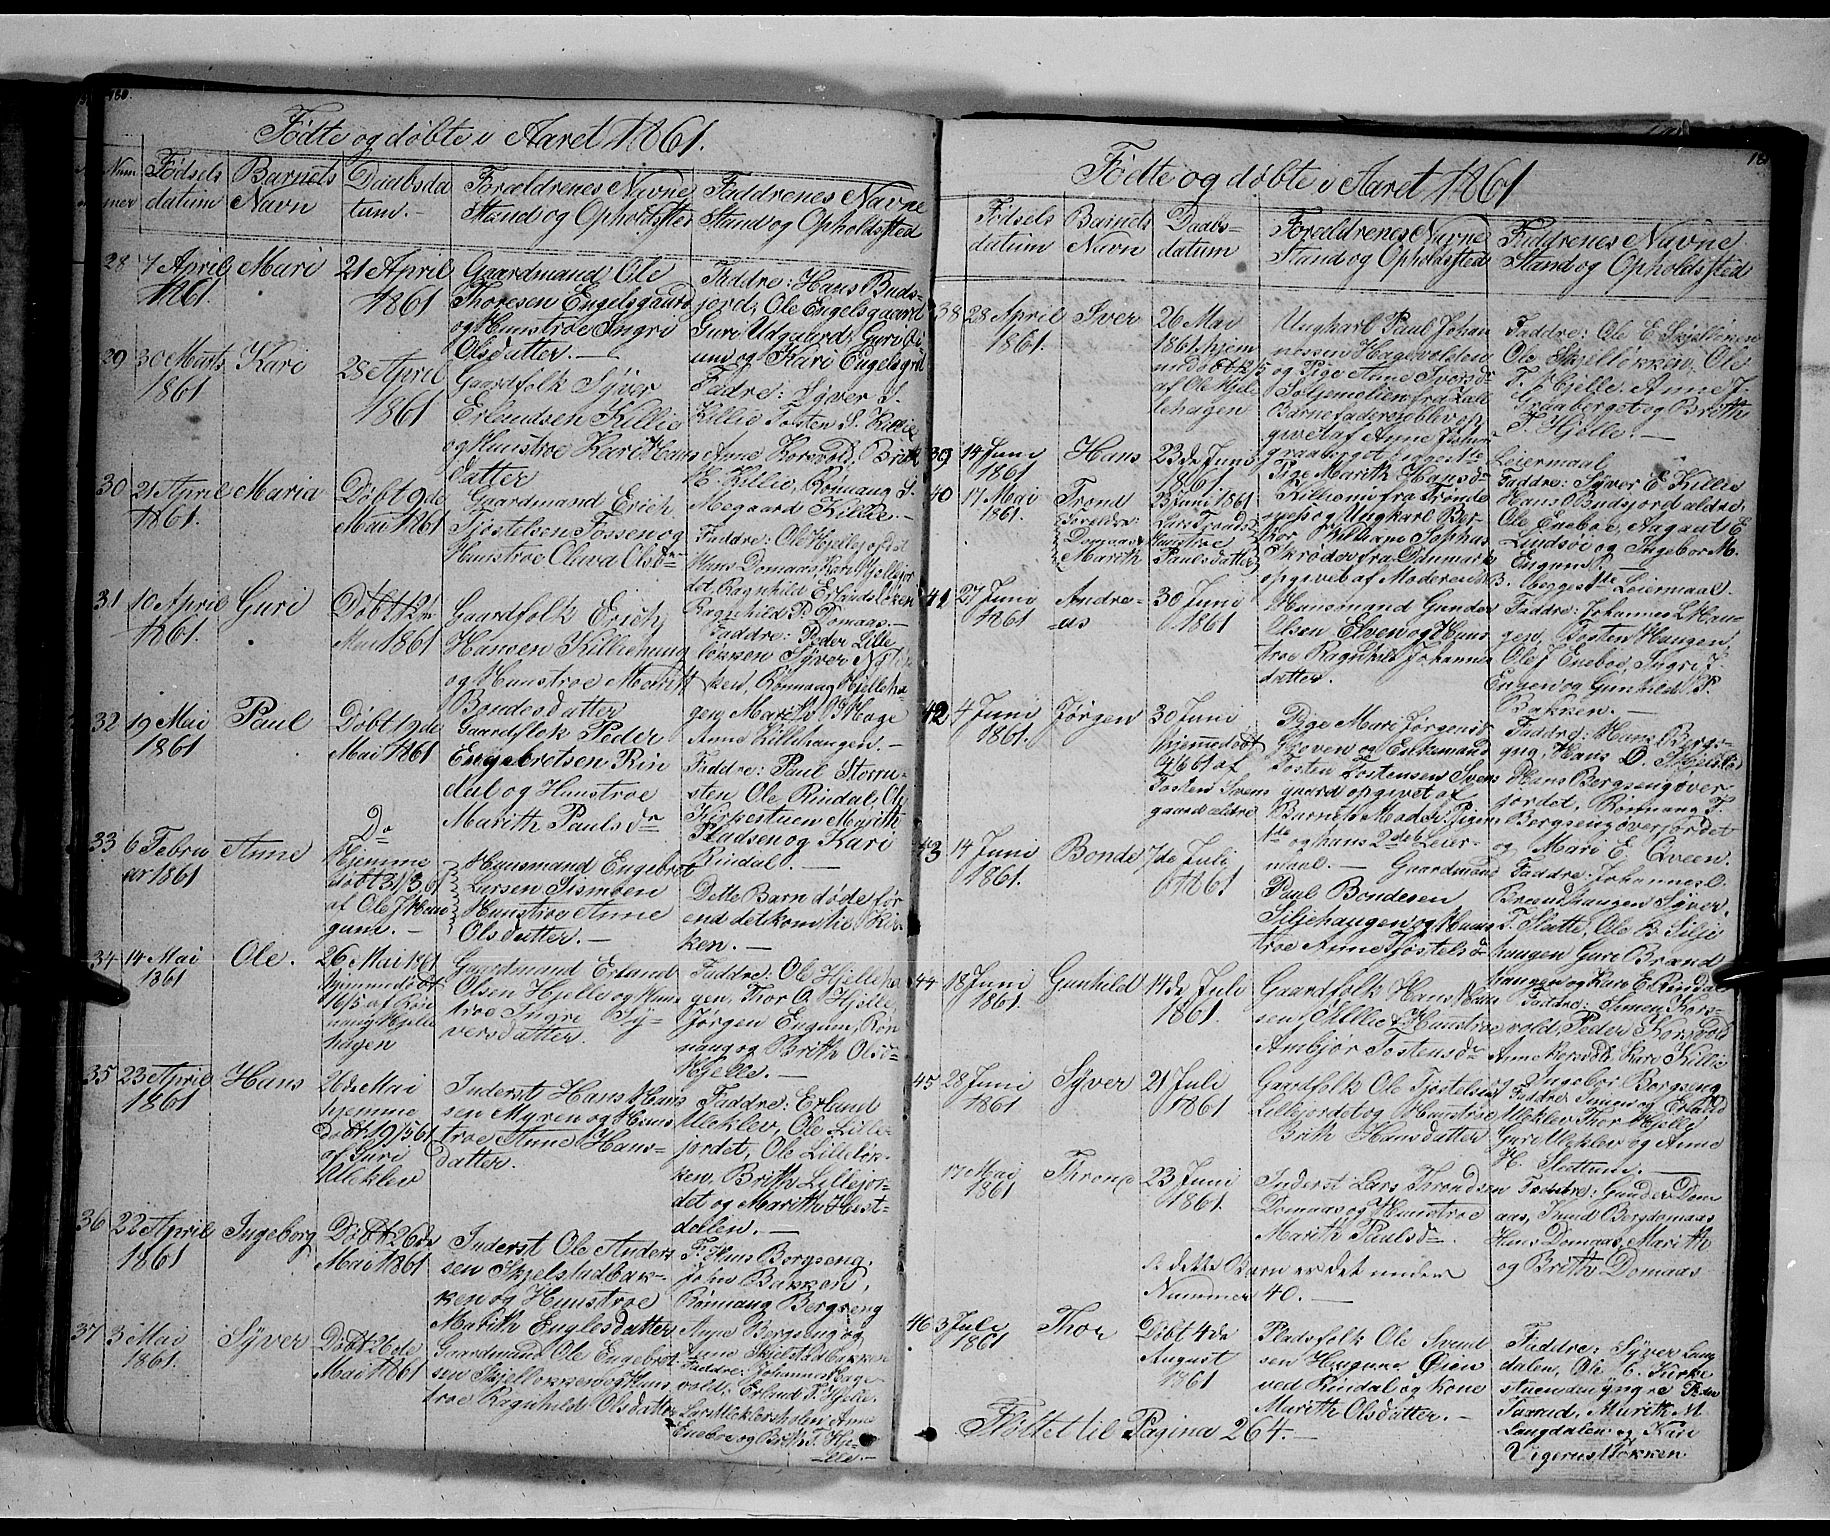 160.
Fødte og døbte i Aaret 1861.
Num
mer
Fødsels
datum
Barnets
Navn
Daabsda
tum.-
Forældrenes Navne
Stand og Opholdssted
Faddrenes Navne
Stand og Opholdssted
28
7 April
1861.
Mari
21 April
1861
Gaardmand Ole
Thoresen Engelsgaard
og Hustroe Ingri
Olsdatter.-
Faddre: Hans Buds-
jord, Ole Engelsgaard
Guri Udgaard, Guri
og Kari Engelsgrd
29
30 Marts
1861
Kari
28 April
1861
Gaardfolk Syver
Erlandsen Killie
og Hustroe Kari Hans
datter
Fadre: Syver S.
Killie Tosten S. Killie
Anne Korsvold, Brith
H. Killie, Rønnaug S.
Megaard Killie.-
30
21 April
1861.
Maria
Døbt 9de
Mai 1861
Gaardmand Erich
Tjøstelsen Fossen og
Hustroe Clara Olsd
Faddre: Ole Hjellejordet
Hans Domaas Kari Hjellejor
det, Ragnhild Erlandsløken
Ragnhild P. Domaas.-
31
10 April
1861.
Guri
Døbt 12te
Mai 1861
Gaardfolk Erich
Hansen Killiehaug
og Hustroe Marit
Bondesdatter
Faddre: Peder Lille
løkken Syver
ken, Rønnaug Hjelleha
gen, Mari B. Hage
Anne Killiehaugen.-
32
19 Mai
1861
Paul
Døbt 19de
Mai 1861
Gaardflok Peder
Engebretsen Rin
dal og Hustroe
Marith Paulsdr
Faddre: Paul Storru-
sten Ole Rindal, Ole
Kirkestuen Marith
Pladsen og Kari
Rindal.-
33
6 Febru
ar 1861
Anne
Do
Hjemme
døbt 31/3 61
af Ole J. Hau
gum.-
Huusmand Engebret
Larsen Sismoen
Hustroe Anne
Olsdatter.-
Dette Barn døde før
end det kom til Kir-
ken.-
34
14 Mai
1861
Ole.
26 Mai 1861
hjemmedøbt
16/5 af Røn
naug Hjelle
hagen
Gaardmand Erland
Olsen Hjelle og Hus
troe Ingri Sy-
versdatter.
Faddre: Ole Hjelleha
gen, Thor O. Hjelle,
Jørgen Engum, Røn
naug og Brith Olsdr
Hjelle.-
35
23 April
1861
Hans
26de Mai
hjemme
døbt 19/5 61
af Guri
Uleklev
Inderst Hans Hans
sen Myren og Hus
troe Anne Hans-
datter.
Faddre: Erland
Uleklev, Ole Lille-
jordet, Ole Lilleløk-
ken, Brith Lillejor-
det og Marith Hest-
dalen.-
36
22 April
1861
Ingeborg
Døbt 26de
Mai 1861
Inderst Ole Anders
sen Skjelstadbak-
ken og Hustroe
Marith Englesdatter
F: Hans Borgseng,
John Bakken,
Rønnaug Bergseng
Anne Bergseng og
Anne Skjelstadbakken
37
3 Mai
1861.
Syver
Døbt 26de
Mai 1861
Gaardmand Ole Engebret
sen Skjelløkken og Hus
troe Ragnhild Olsdatter
Faddre: Johannes Hage-
vold, Erland T. Hjelle.
Lars Uleklevsholen Anne
Eneboe og Brith T. Hje-
lle.-
Fødte og døbte i Aaret 1861
Fødsels
datum
Barnets
Navn
Daabs-
datum
Forældrenes Navne
Stand og Opholdssted
Faddrenes Navne
Stand og Opholdssted
38
28 April
1861.
Iver
26 Mai
1861 hjem
medøbt 2/5
af Ole Hjel
lehagen
Ungkarl Paul Johan
nessen Hagevolden
og Pige Anne Iversdr
Soljemoeien fra
Barnefader blev op
givet af Anne
Leiermaal
Faddre: Ole E. Skjelløkken
Ole Skjelløkken, Ole
T. Hjelle. Anne J.
Traaberget og Brith
T. Hjelle.-
39
14 Juni
1861
Hans
23de Juni
1861
Pige Marith Hansdr
Killiemi fra Trond
og Ungkarl Ber-
William Sophus
Skrøder fra Danmark
opgivet af Moderen
B. begges 1te Leiermaal.
Faddre: Syver E. Killie
Hans Budsjord aldre,
Ole Eneboe, Aagaat E.
Lindsøe og Ingebor M.
Engum.
40
17 Mai
1861.
Trond
Foreldre
Domaas
Marith
23 Juni 1861
Lars Trondss
Hustroe
Paulsdatter
41
27 Juni
1861
Andre-
as
30 Juni
1861
Huusmand Gunder
Olsen Elven og Hus
troe Ragnhild Johannes
datter.
Faddre: Johannes L. Hau-
gen, Tosten Haugen,
Ole J. Eneboe, Ingri J.
Engen og Gunhild P.
Bakken.-
42
4 Juni
1861.
Jørgen
30 Juni
hjemmedøbt
4/6 61 af
Tosten Svens
gaard aldre
Pige Mari Jørgensdr
Gjøven og Enkemand
Tosten Tostensen Svens
gaard opgivet af
Barnets Moder. Pigen
1te og hans 2det Leier-
maal.-
Faddre: Hans Bergs-
eng, Hans O. Skjelsta
Hans Bergsengøver-
jordet, Rønnaug T.
Bergsengøverjordet
og Mari E. Qveen.
43
14 Juni
1861.
Bonde
7de Juli
1861
Gaardmand
Paul Bondesen
Siljehaugen og Hus
troe Anne Tjøstelsdr
Faddre: Johannes O.
Brandhaugen Syver,
T. Slette, Ole B. Silje
haugen Guri Brand
haugen og Kari E. Rindal
44
18 Juni
1861.
Gunhild
14de Juli
1861.
Gaardfolk Hans Han
sen Killie & Hustroe
Ambjør Tostensdr
Faddre: Simen Kors-
vold, Peder Korsvold
Anne Korsvold, Kari Killie
og Ingebor Borgseng
45
28 Juni
1861
Syver
21 Juli
1861
Gaardfolk Ole Tjøstelsen
Lillejordet og Hustroe
Brith Hansdatter
Faddre: Simen og Erland
Uleklev Thor Hjelle
Guri Uleklev og Anne
H. Slettum.-
17 Mai
1861
Thrond
23 Juni
1861.
Inderst Lars Throndsen
Domaas og Hustroe
Marith Paulsdr.
Faddre: Gunder Dom
aas, Knud Bergdomaas
Hans Domaas, Marith
og Brith Domaas
dette Barn er det under
Nummer 40.-
46
3 Juli
1861
Thor
Døbt 4de
August
1861
Pladsfolk Ole Svend
sen Haugum Øien
ved Rindal og Kone
Marith Olsdatter.-
Faddre: Syver Lang
dalen, Ole E. Kirke
stuen den yngre Peder
Taarud, Marith M.
Langdalen og Kari
Vigerustløkken
Fløttet til Pagina 264.-